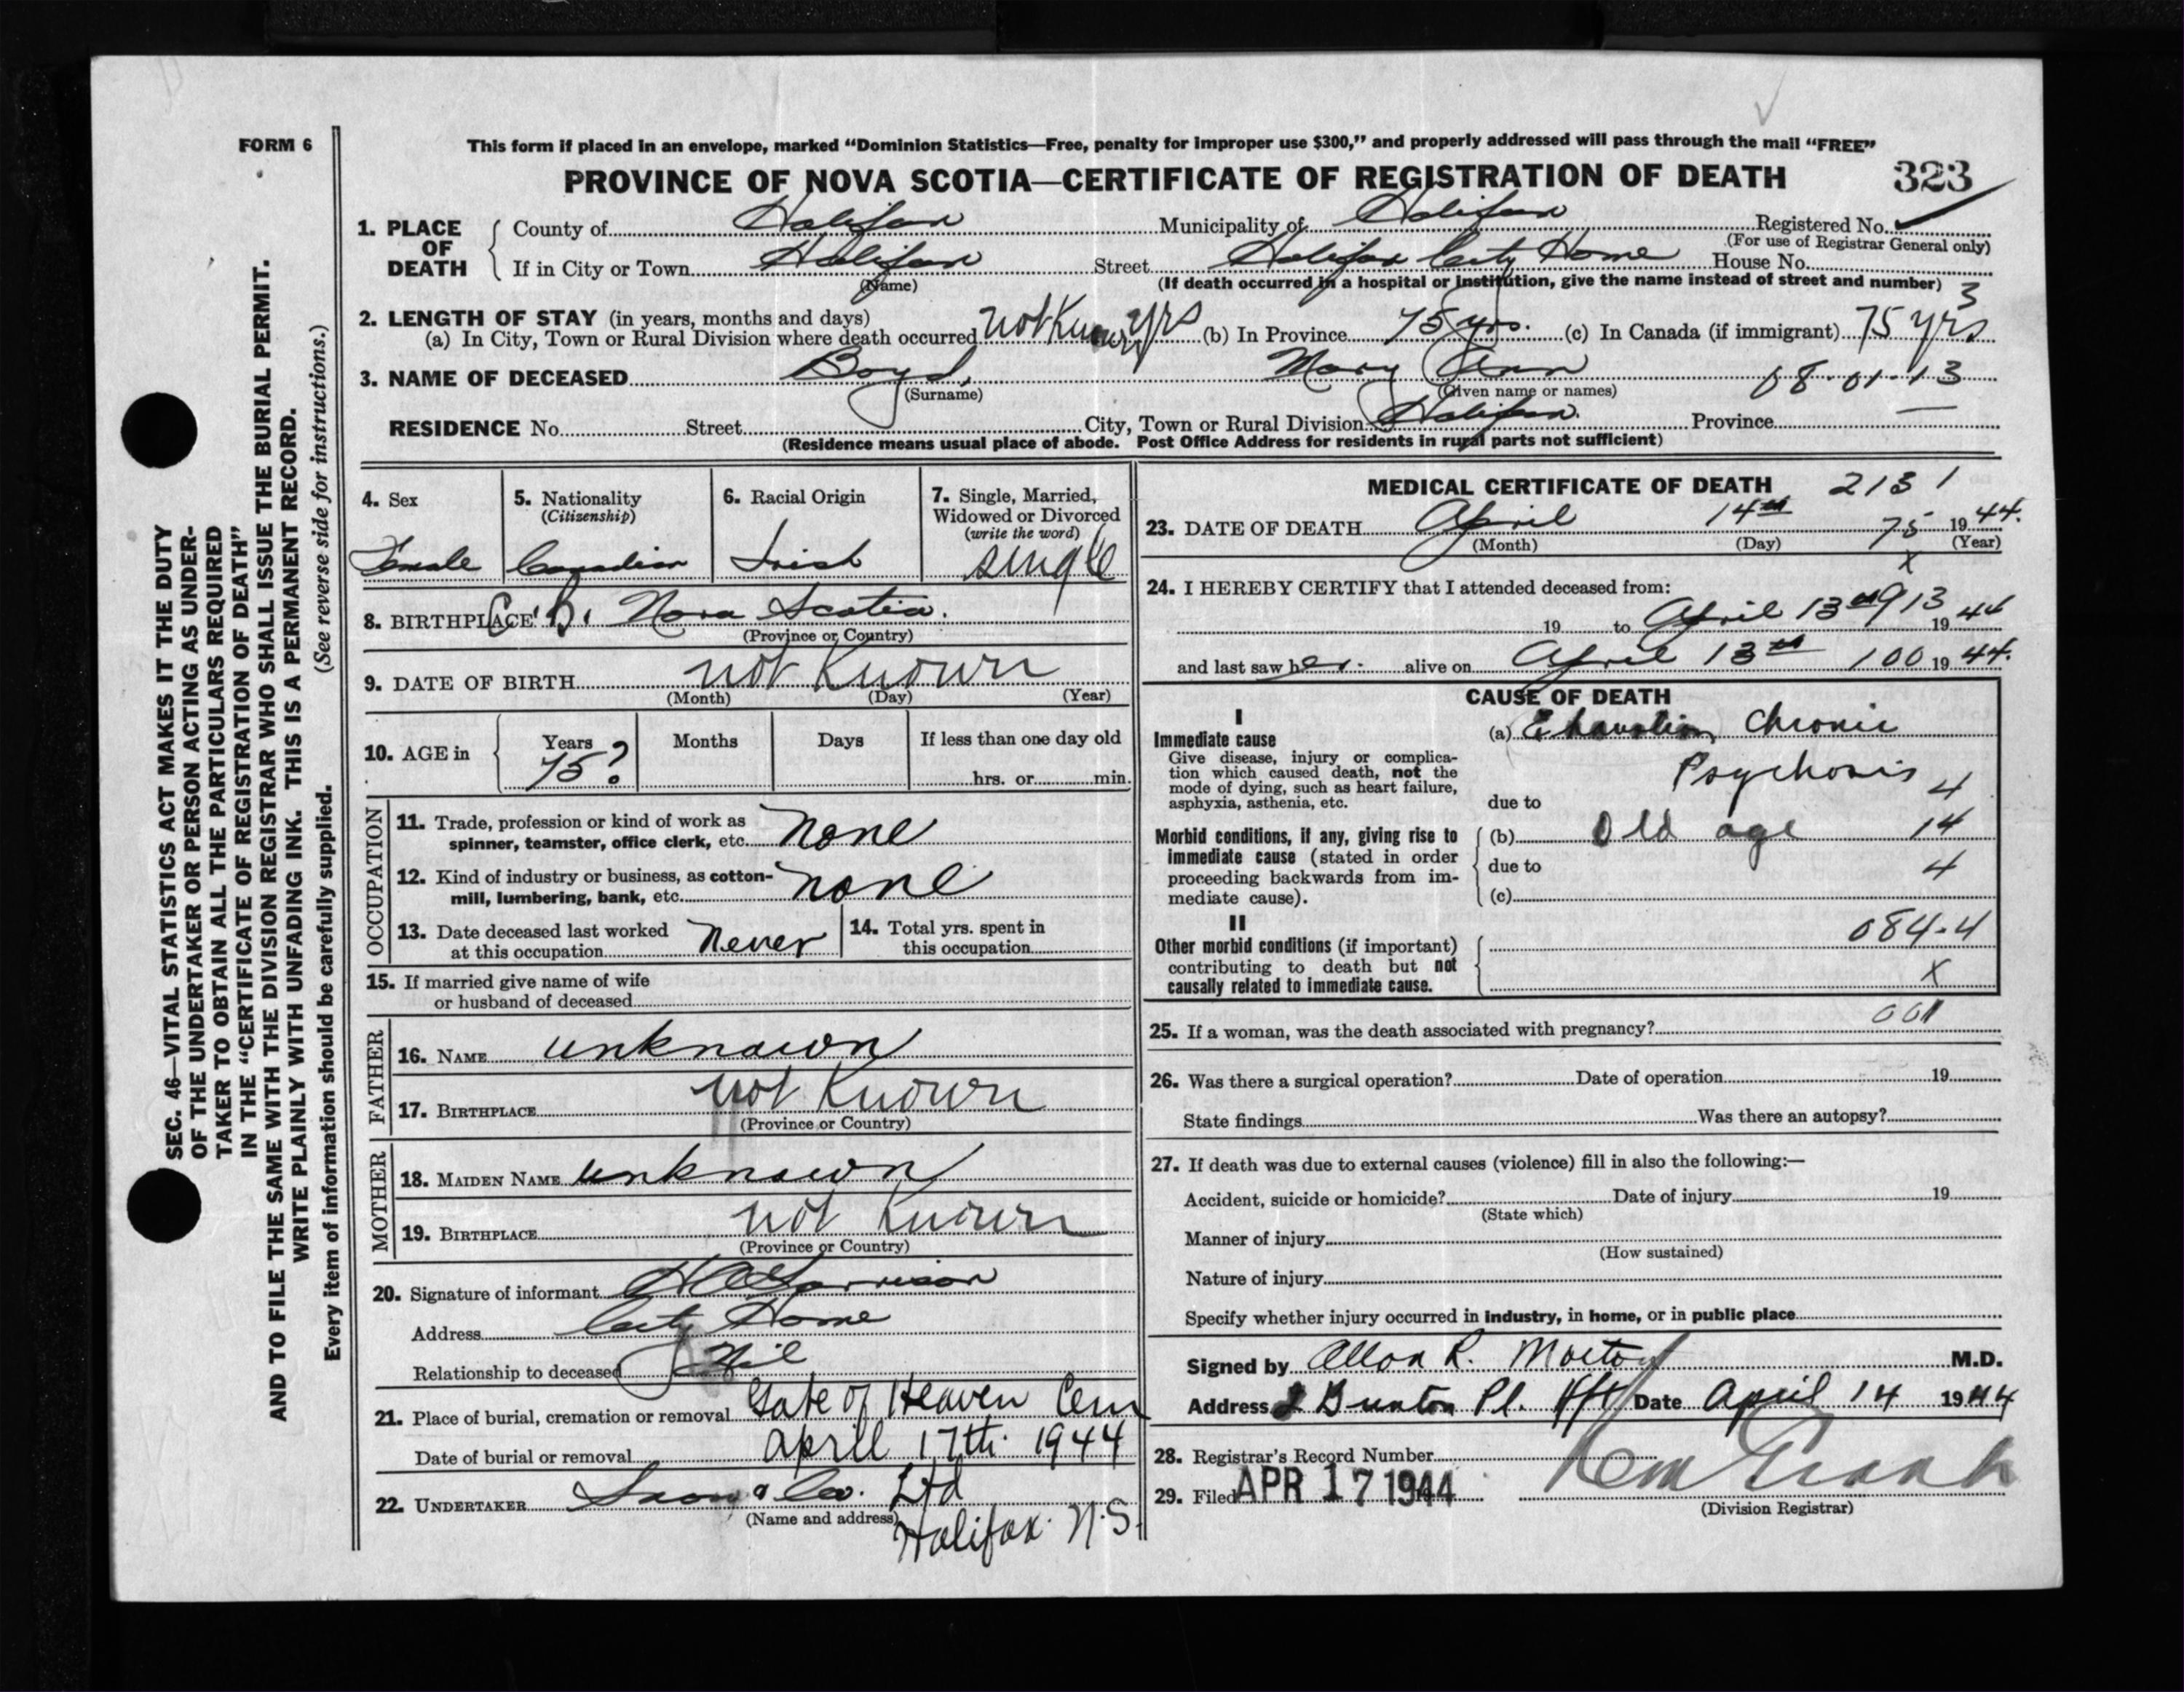 FORM 6
This form if placed in an envelope, marked "Dominion Statistics—Free, penalty for improper use $300," and properly addressed will pass through the mail "FREE"
PROVINCE OF NOVA SCOTIA—CERTIFICATE OF REGISTRATION OF DEATH 323
SEC. 46—VITAL STATISTICS ACT MAKES IT THE DUTY
OF THE UNDERTAKER OR PERSON ACTING AS UNDER-
TAKER TO OBTAIN ALL THE PARTICULARS REQUIRED
IN THE "CERTIFICATE OF REGISTRATION OF DEATH"
AND TO FILE THE SAME WITH THE DIVISION REGISTRAR WHO SHALL ISSUE THE BURIAL PERMIT.
WRITE PLAINLY WITH UNFADING INK. THIS IS A PERMANENT RECORD.
Every item of information should be carefully supplied. (See reverse side for instructions.)
1. PLACE OF DEATH
County of Halifax Municipality of Halifax Registered No.
(For use of Registrar General only)
If in City or Town Halifax Street Halifax City Home House No.
(Name) (If death occurred in a hospital or institution, give the name instead of street and number) 3
2. LENGTH OF STAY (in years, months and days)
(a) In City, Town or Rural Division where death occurred not Known yrs (b) In Province 75 yrs. (c) In Canada (if immigrant) 75 yrs
3. NAME OF DECEASED Boyd, Mary Ann 08-01-13
(Surname) (Given name or names)
RESIDENCE No. Street City, Town or Rural Division Halifax. Province —
(Residence means usual place of abode. Post Office Address for residents in rural parts not sufficient)
4. Sex
Female
5. Nationality
(Citizenship)
Canadian
6. Racial Origin
Irish
7. Single, Married,
Widowed or Divorced
(write the word)
single
8. BIRTHPLACE C.B. Nova Scotia.
(Province or Country)
9. DATE OF BIRTH not Known
(Month) (Day) (Year)
10. AGE in Years Months Days If less than one day old
75? hrs. or min.
OCCUPATION
11. Trade, profession or kind of work as
spinner, teamster, office clerk, etc. none
12. Kind of industry or business, as cotton-
mill, lumbering, bank, etc. none
13. Date deceased last worked
at this occupation never
14. Total yrs. spent in
this occupation
15. If married give name of wife
or husband of deceased
FATHER
16. NAME unknown
17. BIRTHPLACE not Known
(Province or Country)
MOTHER
18. MAIDEN NAME unknown
19. BIRTHPLACE not Known
(Province or Country)
20. Signature of informant
Address City Home
Relationship to deceased Nil
21. Place of burial, cremation or removal Gate of Heaven Cem
Date of burial or removal april 17th 1944
22. UNDERTAKER Snow & Co. Ltd
(Name and address)
Halifax. N.S.
MEDICAL CERTIFICATE OF DEATH 2131
23. DATE OF DEATH April 14th 75 1944.
(Month) (Day) (Year)
x
24. I HEREBY CERTIFY that I attended deceased from:
19 to April 13th 913 1944
and last saw her alive on April 13th 100 1944.
CAUSE OF DEATH
I
Immediate cause
Give disease, injury or complica-
tion which caused death, not the
mode of dying, such as heart failure,
asphyxia, asthenia, etc.
(a) Exhaustion, Chronic
Psychosis 4
due to
Morbid conditions, if any, giving rise to
immediate cause (stated in order
proceeding backwards from im-
mediate cause).
(b) Old age 14
due to 4
(c)
II
Other morbid conditions (if important)
contributing to death but not
causally related to immediate cause.
084-4
x
25. If a woman, was the death associated with pregnancy? 001
26. Was there a surgical operation? Date of operation 19
State findings Was there an autopsy?
27. If death was due to external causes (violence) fill in also the following:—
Accident, suicide or homicide? Date of injury 19
(State which)
Manner of injury
(How sustained)
Nature of injury
Specify whether injury occurred in industry, in home, or in public place
Signed by Allan R. Morton M.D.
Address Pl. Hfx Date April 14 1944
28. Registrar's Record Number
29. Filed APR 17 1944
(Division Registrar)